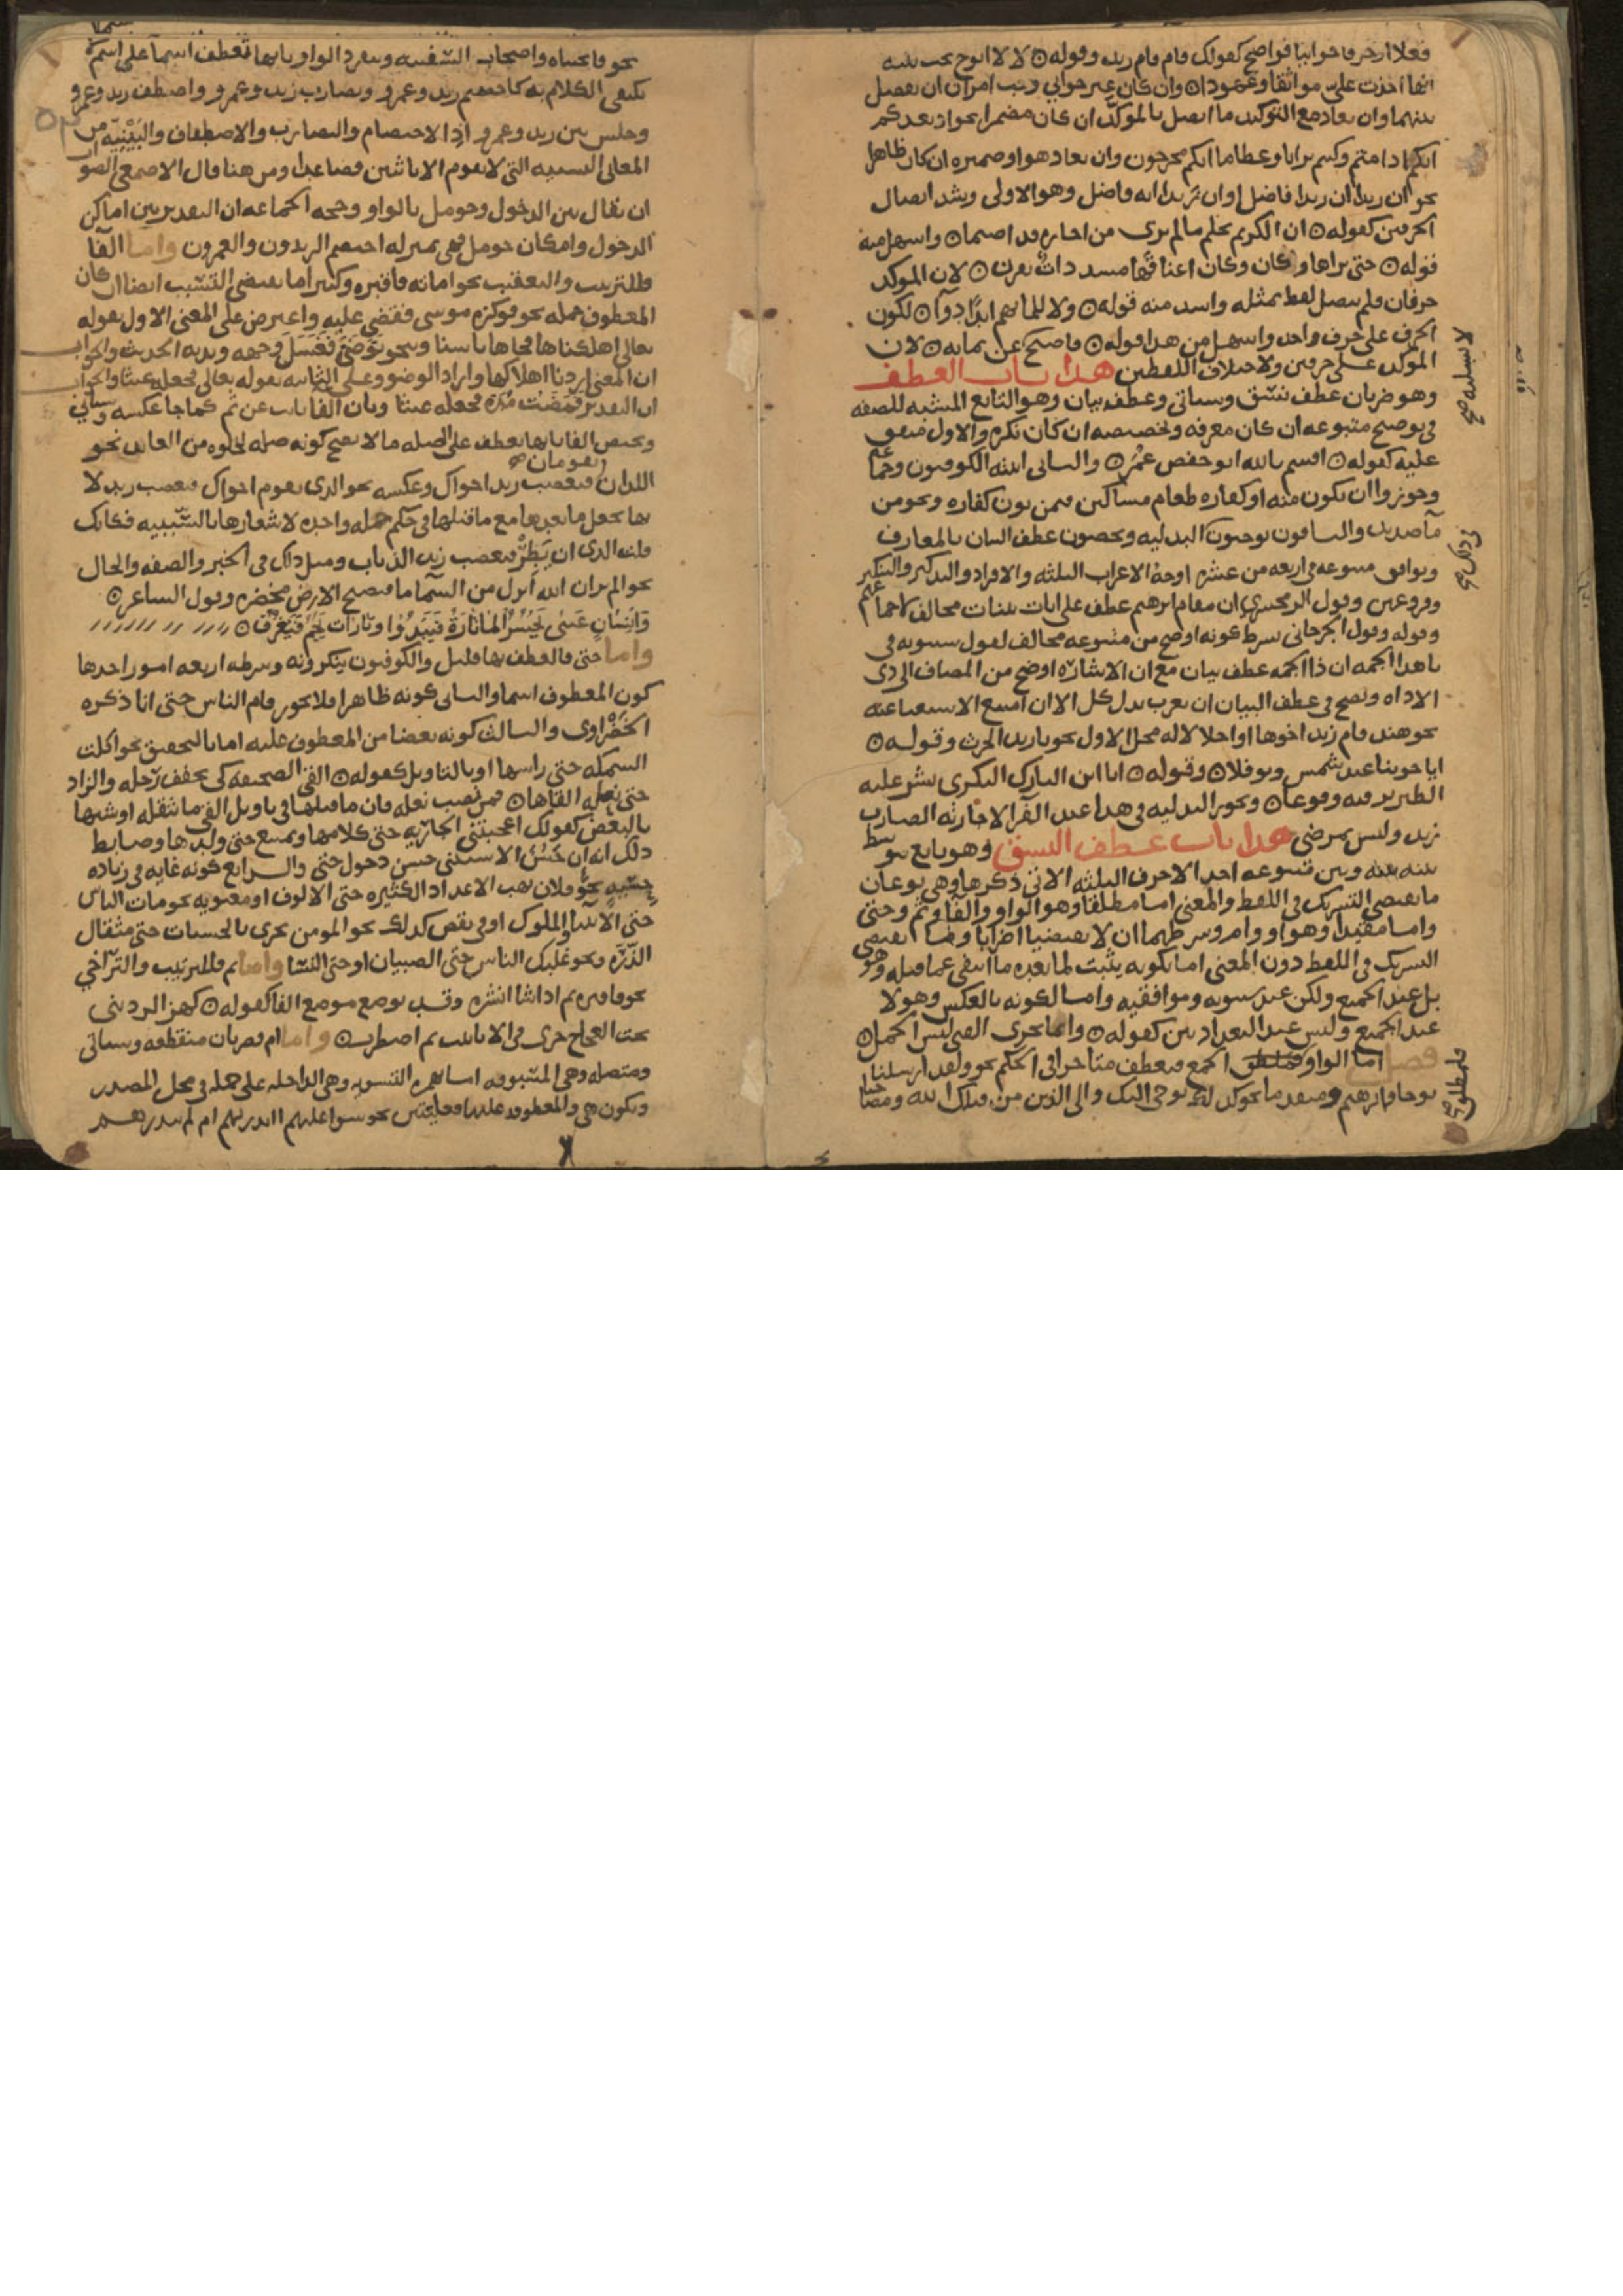 فعلا او حرفا جوابيا فواضح كقولك قام قام زيد وقوله لا لا ابوح بحب بثنة
انها اخذت على مواثقا وعهودا وان كان غير جوابي وجب امران ان يفصل
بينهما وان يعاد مع التوكيد ما اتصل بالموكد ان كان مضمرا نحو ايعدكم
انكم اذا متم وكنتم ترابا وعظاما انكم مخرجون وان يعاد هو او ضميره ان كان ظاهرا
نحو ان زيدا ان زيدا فاضل او ان زيدا انه فاضل وهو الاولى وشذ اتصال
الحرفين كقوله ان ان الكريم يحلم ما لم يرى من اجاره قد اضيما واسهل منه
قوله حتى تراها وكان وكان اعناقها مشددات بقرن لان الموكد
حرفان فلم يتصل لفظ بمثله واشد منه قوله ولا للما بهم ابدا دوا لكون
الحرف على حرف واحد واسهل من هذا قوله فاصبح عن بما به لان
الموكد على حرفين ولاختلاف اللفظين هذا باب العطف
وهو ضربان عطف نسق وسياتي وعطف بيان وهو التابع المشبه للصفة
في توضيح متبوعه ان كان معرفة وتخصيصه ان كان نكرة والاول متفق
عليه كقوله اقسم بالله ابو حفص عمر والثاني اثبته الكوفيون وجماعة
وجوزوا ان يكون منه او كفارة طعام مساكين فيمن نون كفارة ونحو من
ما صديد والباقون يوجبون البدلية ويخصون عطف البيان بالمعارف
ويوافق متبوعه في اربعة من عشرة اوجه الاعراب الثلثة والافراد والتذكير والتنكير
وفروعهن وقول الزمخشري ان مقام ابرهيم عطف على ايات بينات مخالف لاجماعهم
وقوله وقول الجرجاني يشترط كونه اوضح من متبوعه مخالف لقول سيبويه في
يا هذا ذا الجمة ان ذا الجمة عطف بيان مع ان الاشارة اوضح من المضاف الى ذي
الاداة ويصح في عطف البيان ان يعرب بدل كل الا ان امتنع الاستغنا عنه
نحو هند قام زيد اخوها او احلاله محل الاول نحو يا زيد الحرث وقوله
ايا اخوينا عبد شمس ونوفلا وقوله انا ابن التارك البكري بشر عليه
الطير ترقبه وقوعا وتجوز البدلية في هذا عند الفرا لاجازته الضارب
زيد وليس بمرضي هذا باب عطف النسق وهو تابع يتوسط
بينه وبين متبوعه احد الاحرف الثلثه الاتي ذكرها وهي نوعان
ما يقتضي التشريك في اللفظ والمعنى اما مطلقا وهو الواو والفا وثم وحتى
واما مقيدا وهو او وام وشرطهما ان لا يقتضيا اضرابا وما يقتضي
التشريك في اللفظ دون المعنى اما لكونه يثبت لما بعده ما انتفى عما قبله وهو
بل عند الجميع ولكن عند سيبويه وموافقيه واما لكونه بالعكس وهو لا
عند الجميع وليس عند البغداديين كقوله وانما يجزى الفتى ليس الجمل
فصل اما الواو فلمطلق الجمع فيعطف متاخرا في الحكم نحو ولقد ارسلنا
نوحا وابرهيم ومتقدما نحو كذلك يوحي اليك والى الذين من قبلك الله ومصاحبا
فلمطلق صح
نحو فانجيناه واصحاب السفينة وتنفرد الواو بانها تعطف اسما على اسم لا
يكتفى الكلام به كاختصم زيد وعمرو وتضارب زيد وعمرو واصطف زيد وعمرو
وجلس بين زيد وعمرو اذ الاختصام والتضارب والاصطفاف والبينية من
المعاني النسبية التي لا تقوم الا باثنين فصاعدا ومن هنا قال الاصمعي الصواب
ان يقال بين الدخول وحومل بالواو وحجة الجماعة ان التقدير بين اماكن
الدخول واماكن حومل فهي بمنزلة اختصم الزيدون والعمرون واما الفا
فللترتيب والتعقيب نحو اماته فاقبره وكثيرا ما يقتضي التسبب ايضا ان كان
المعطوف جملة نحو فوكزه موسى فقضى عليه واعترض على المعنى الاول بقوله
تعالى اهلكناها فجاها باسنا ونحو توضى فغسل وجهه ويديه الحديث والجواب
ان المعنى اردنا اهلاكها واراد الوضو وعلى الثانية بقوله تعالى فجعله غثا والجواب
ان التقدير فمضت مدة فجعله غثا وبان الفا نابت عن ثم كما جا عكسه وسياتي
وتختص الفا بانها تعطف على الصلة ما لا يصح كونه صلة لخلوه من العايد نحو
اللذان يقومان فيغضب زيد اخواك وعكسه نحو الذي يقوم اخواك فيغضب زيد لا
نها تجعل ما بعدها مع ما قبلها في حكم جملة واحدة لاشعارها بالسببية فكانك
قلت الذي ان يطر يغضب زيد الذباب ومثل ذلك في الخبر والصفة والحال
نحو الم تر ان الله انزل من السما ما فتصبح الارض مخضرة وقول الشاعر
وانسان عيني يحسر الما تارة فيبدوا وتارات يجم فيغرق
واما حتى فالعطف بها قليل والكوفيون ينكرونه وشرطه اربعة امور احدها
كون المعطوف اسما والثاني كونه ظاهرا فلا يجوز قام الناس حتى انا ذكره
الخضراوي والثالث كونه بعضا من المعطوف عليه اما بالتحقيق نحو اكلت
السمكة حتى راسها او بالتاويل كقوله القى الصحيفة كي يخفف رحله والزاد
حتى نعله القاها فيمن نصب نعله فان ما قبلها في تاويل القى ما يثقله او شبها
بالبعض كقولك اعجبتني الجارية حتى كلامها ويمتنع حتى ولدها وضابط
ذلك انه ان حسن الاستثني حسن دخول حتى والرابع كونه غاية في زيادة
حسية نحو فلان يهب الاعداد الكثيرة حتى الالوف او معنوية نحو مات الناس
حتى الانبيا والملوك او في نقص كذلك نحو المومن يجزى بالحسنات حتى مثقال
الذرة ونحو غلبك الناس حتى الصبيان او حتى النسا واما ثم فللترتيب والتراخي
نحو فاقبره ثم اذا شا انشره وقد توضع موضع الفا كقوله كهز الرديني
تحت العجاج جرى في الانابيب ثم اضطرب واما ام فضربان منقطعة وستاتي
ومتصلة وهي المسبوقة اما بهمزة التسوية وهي الداخلة على جملة في محل المصدر
وتكون هي والمعطوفة عليها فعليتين نحو سوا عليهم اانذرتهم ام لم تنذرهم